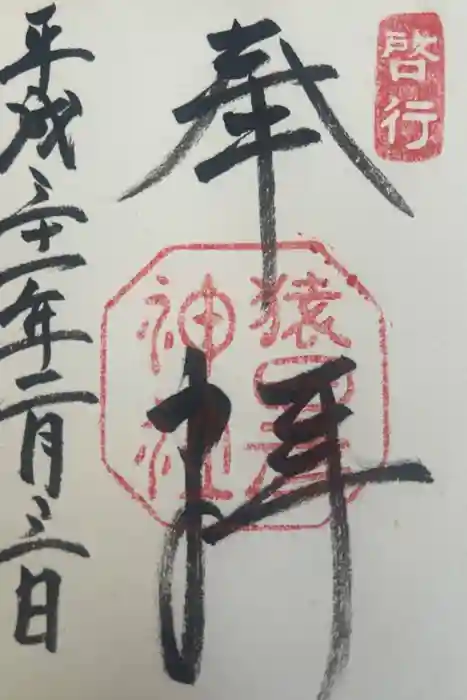 啓行
奉拝
猿田彦
神社
平成三十一年二月三日